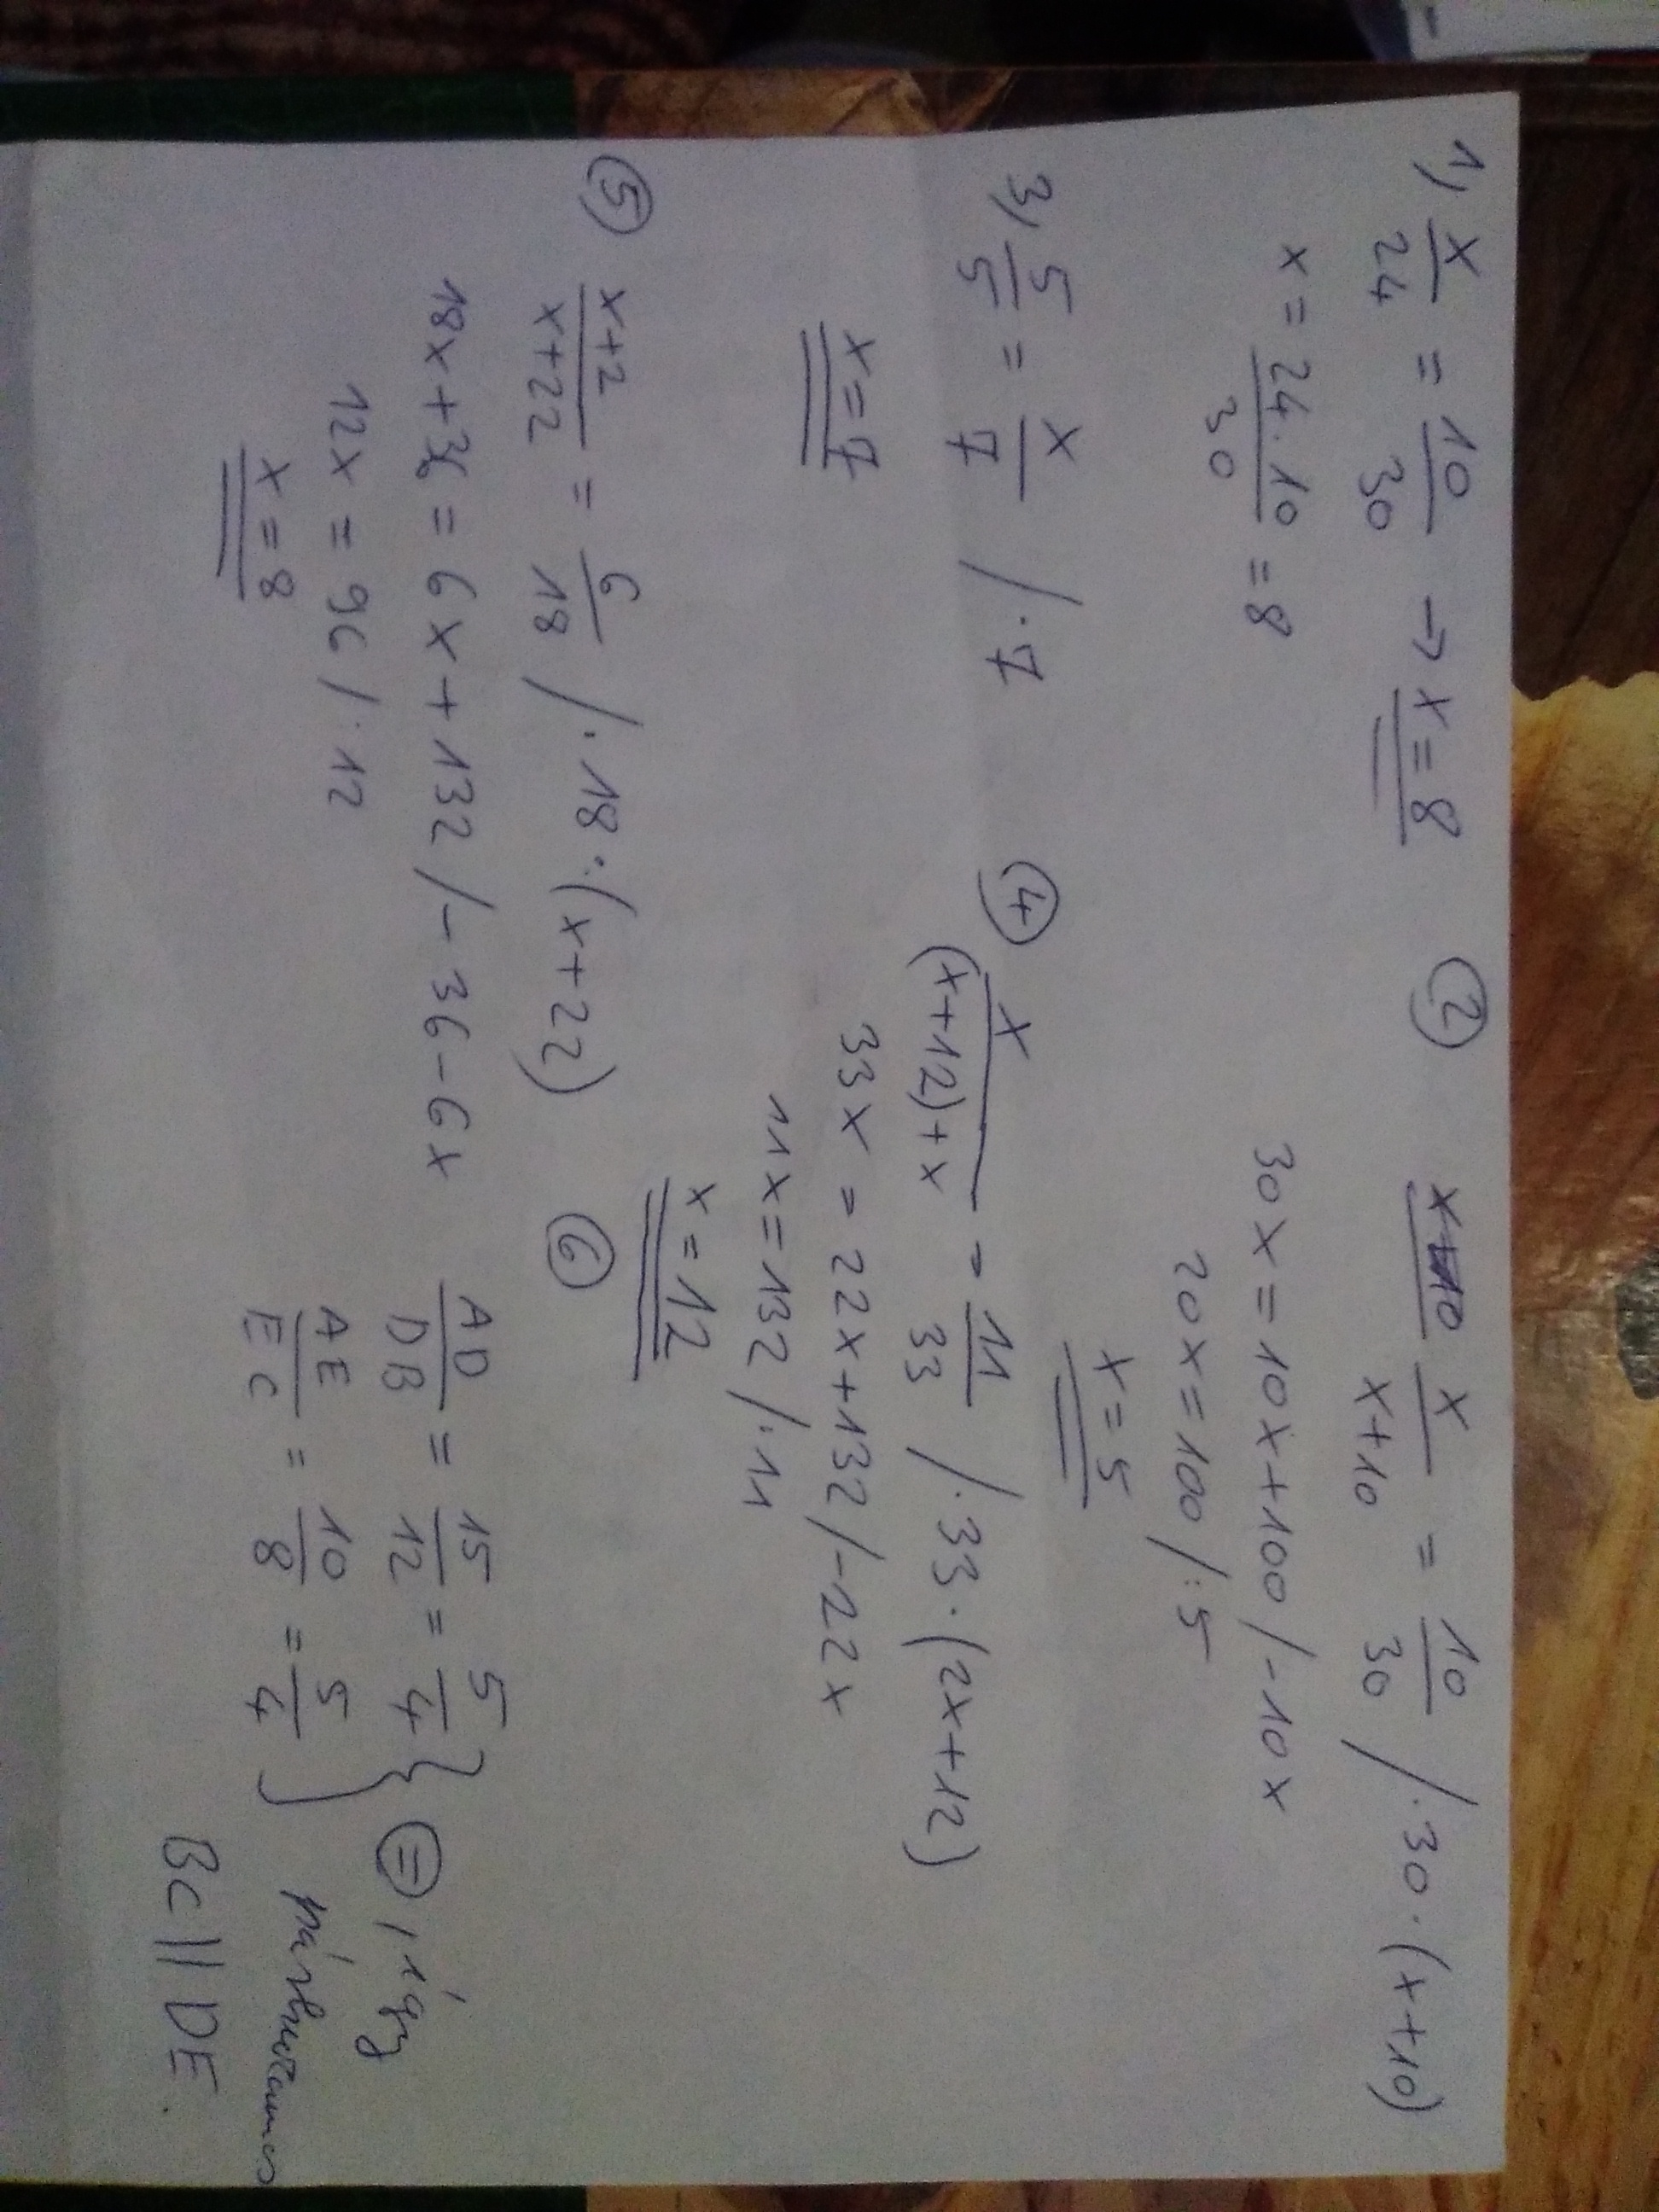 1) x/24 = 10/30 → x = 8
x = 24·10/30 = 8
② x/x+10 = 10/30 /·30·(x+10)
30x = 10x+100 /-10x
20x = 100 /:5
x = 5
3) 5/5 = x/7 /·7
x = 7
④ x/(x+12)+x = 11/33 /·33·(2x+12)
33x = 22x+132 /-22x
11x = 132 /:11
x = 12
⑤ x+2/x+22 = 6/18 /·18·(x+22)
18x+36 = 6x+132 /-36-6x
12x = 96 /:12
x = 8
⑥ AD/DB = 15/12 = 5/4
AE/EC = 10/8 = 5/4
} =, így
párhuzamos
BC || DE.